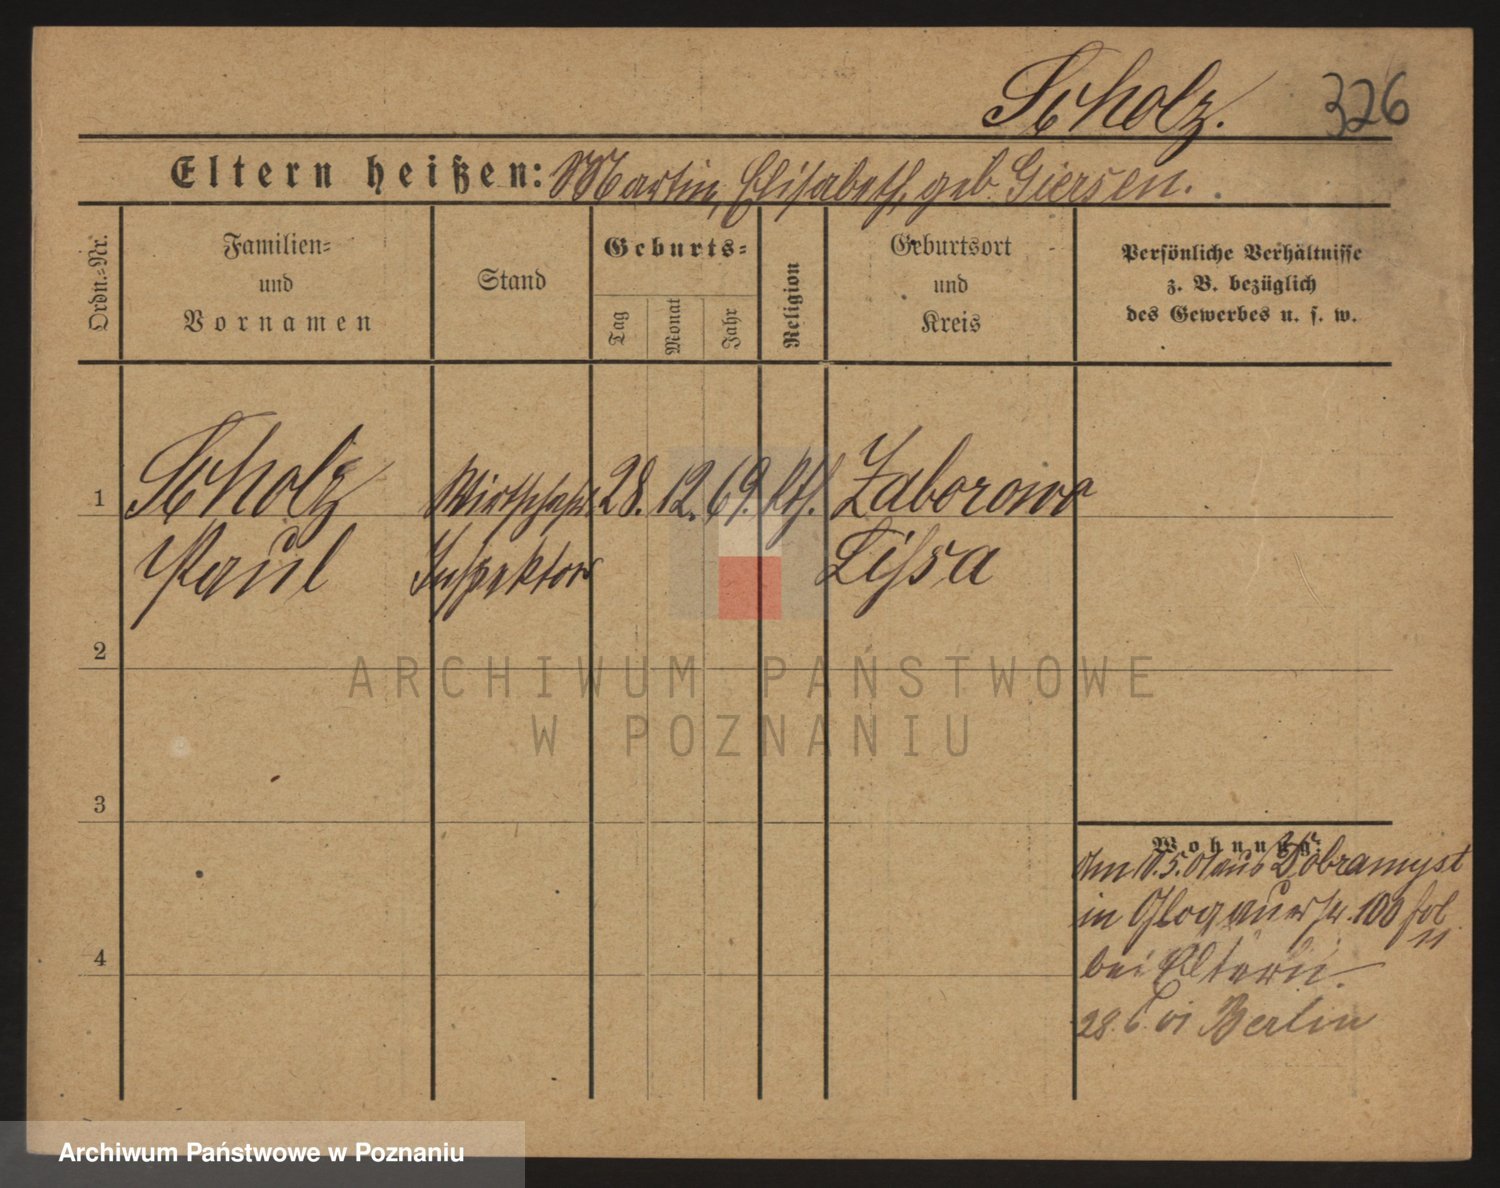 Scholz.
326
Eltern heißen: Martin, Elisabeth, geb. Giersen.
Ordn.-Nr.
Familien-
und
Vornamen
Stand
Geburts-
Tag
Monat
Jahr
Religion
Geburtsort
und
Kreis
Persönliche Verhältnisse
z. B. bezüglich
des Gewerbes u. s. w.
1 Scholz Wirtschafts 28. 12. 69. kth. Zaborowo
Paul Inspektor Lissa
2
ARCHIWUM PAŃSTWOWE
W POZNANIU
3
Wohnung:
Am 10.5.01 aus Dobramyst
in Glogauerstr. 100
4
bei Eltern.
28.6.01 Berlin
Archiwum Państwowe w Poznaniu